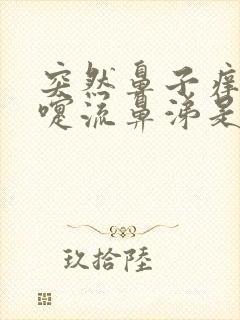 突然鼻子痒
嚏流鼻涕是
玖拾陸